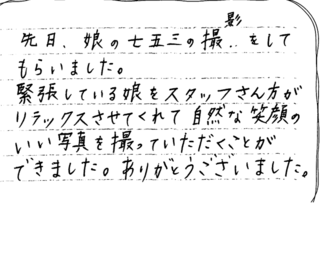 先日、娘の七五三の撮影をして
もらいました。
緊張している娘をスタッフさん方が
リラックスさせてくれて自然な笑顔の
いい写真を撮っていただくことが
できました。ありがとうございました。